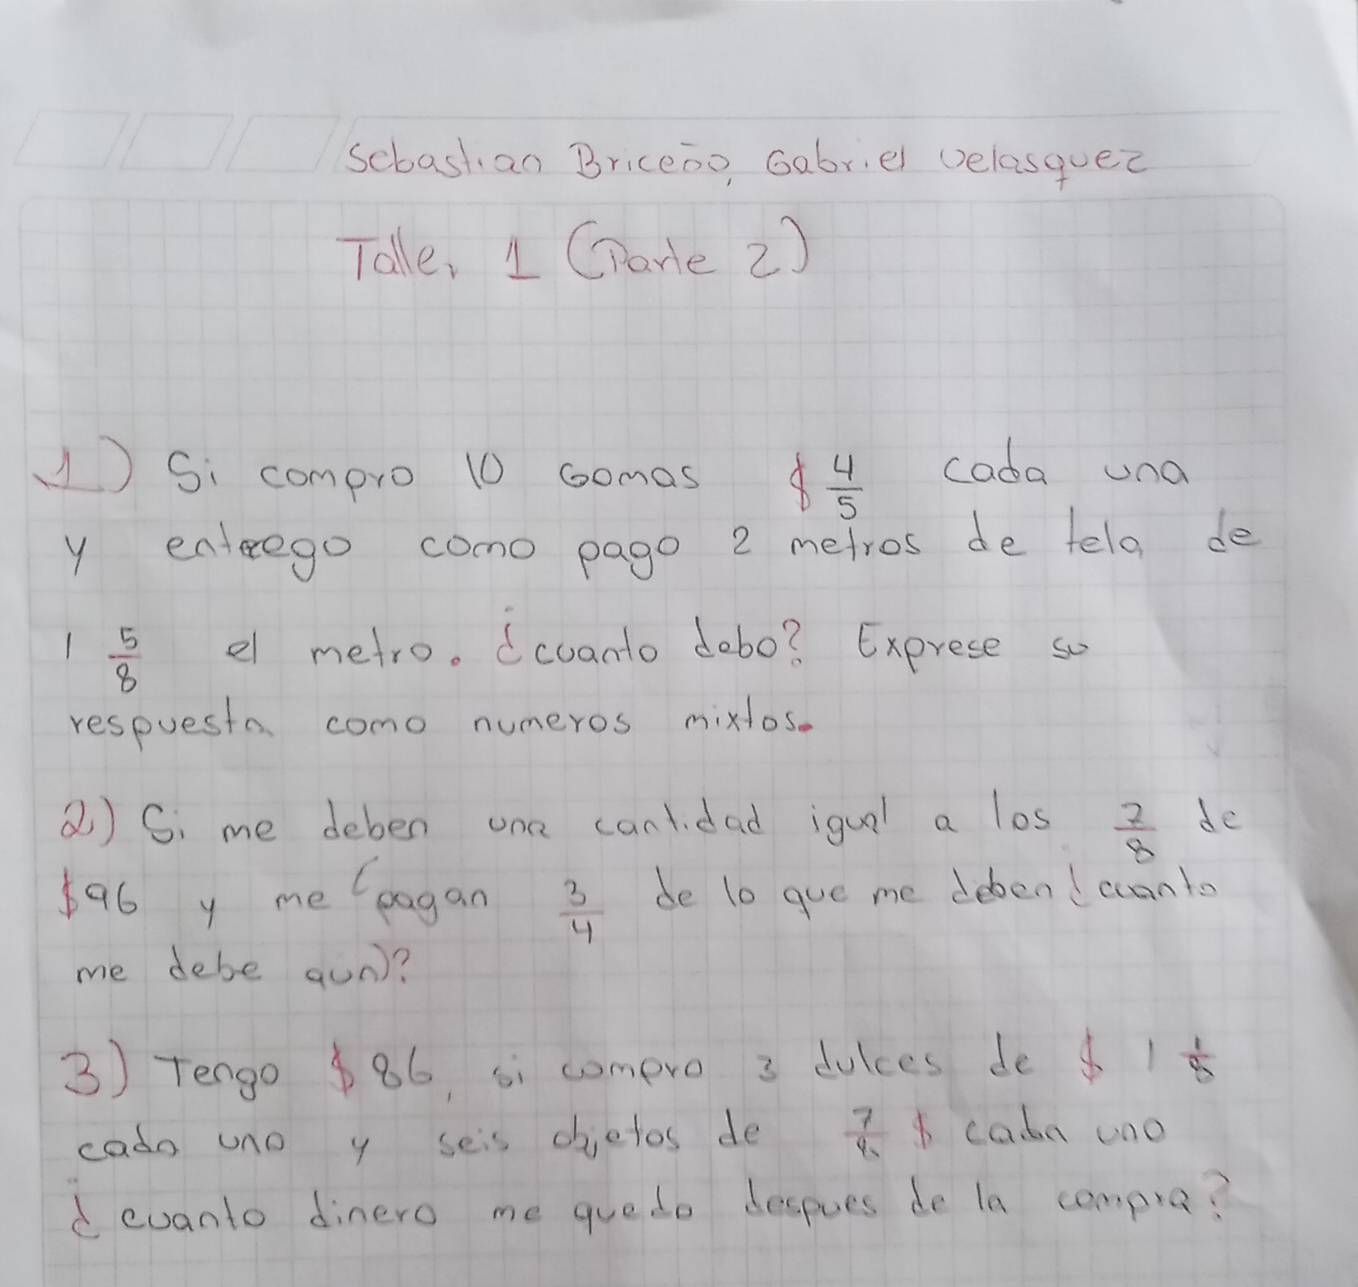 Sebastian Briceño, Gabriel Velasquez
Taller 1 (Parte 2)
1) Si compro 10 Gomas $ 4/5 cada una
y entrego como pago 2 metros de tela de
1 5/8 el metro. ¿cuanto debo? Exprese su
respuesta como numeros mixtos.
2) Si me deben una cantidad igual a los 7/8 de
$96 y me pagan 3/4 de lo que me deben ¿cuanto
me debe aun)?
3) Tengo $86, si compro 3 dulces de $ 1 1/8
cada uno y seis objetos de 7/8 $ cada uno
¿cuanto dinero me quedo despues de la compra?